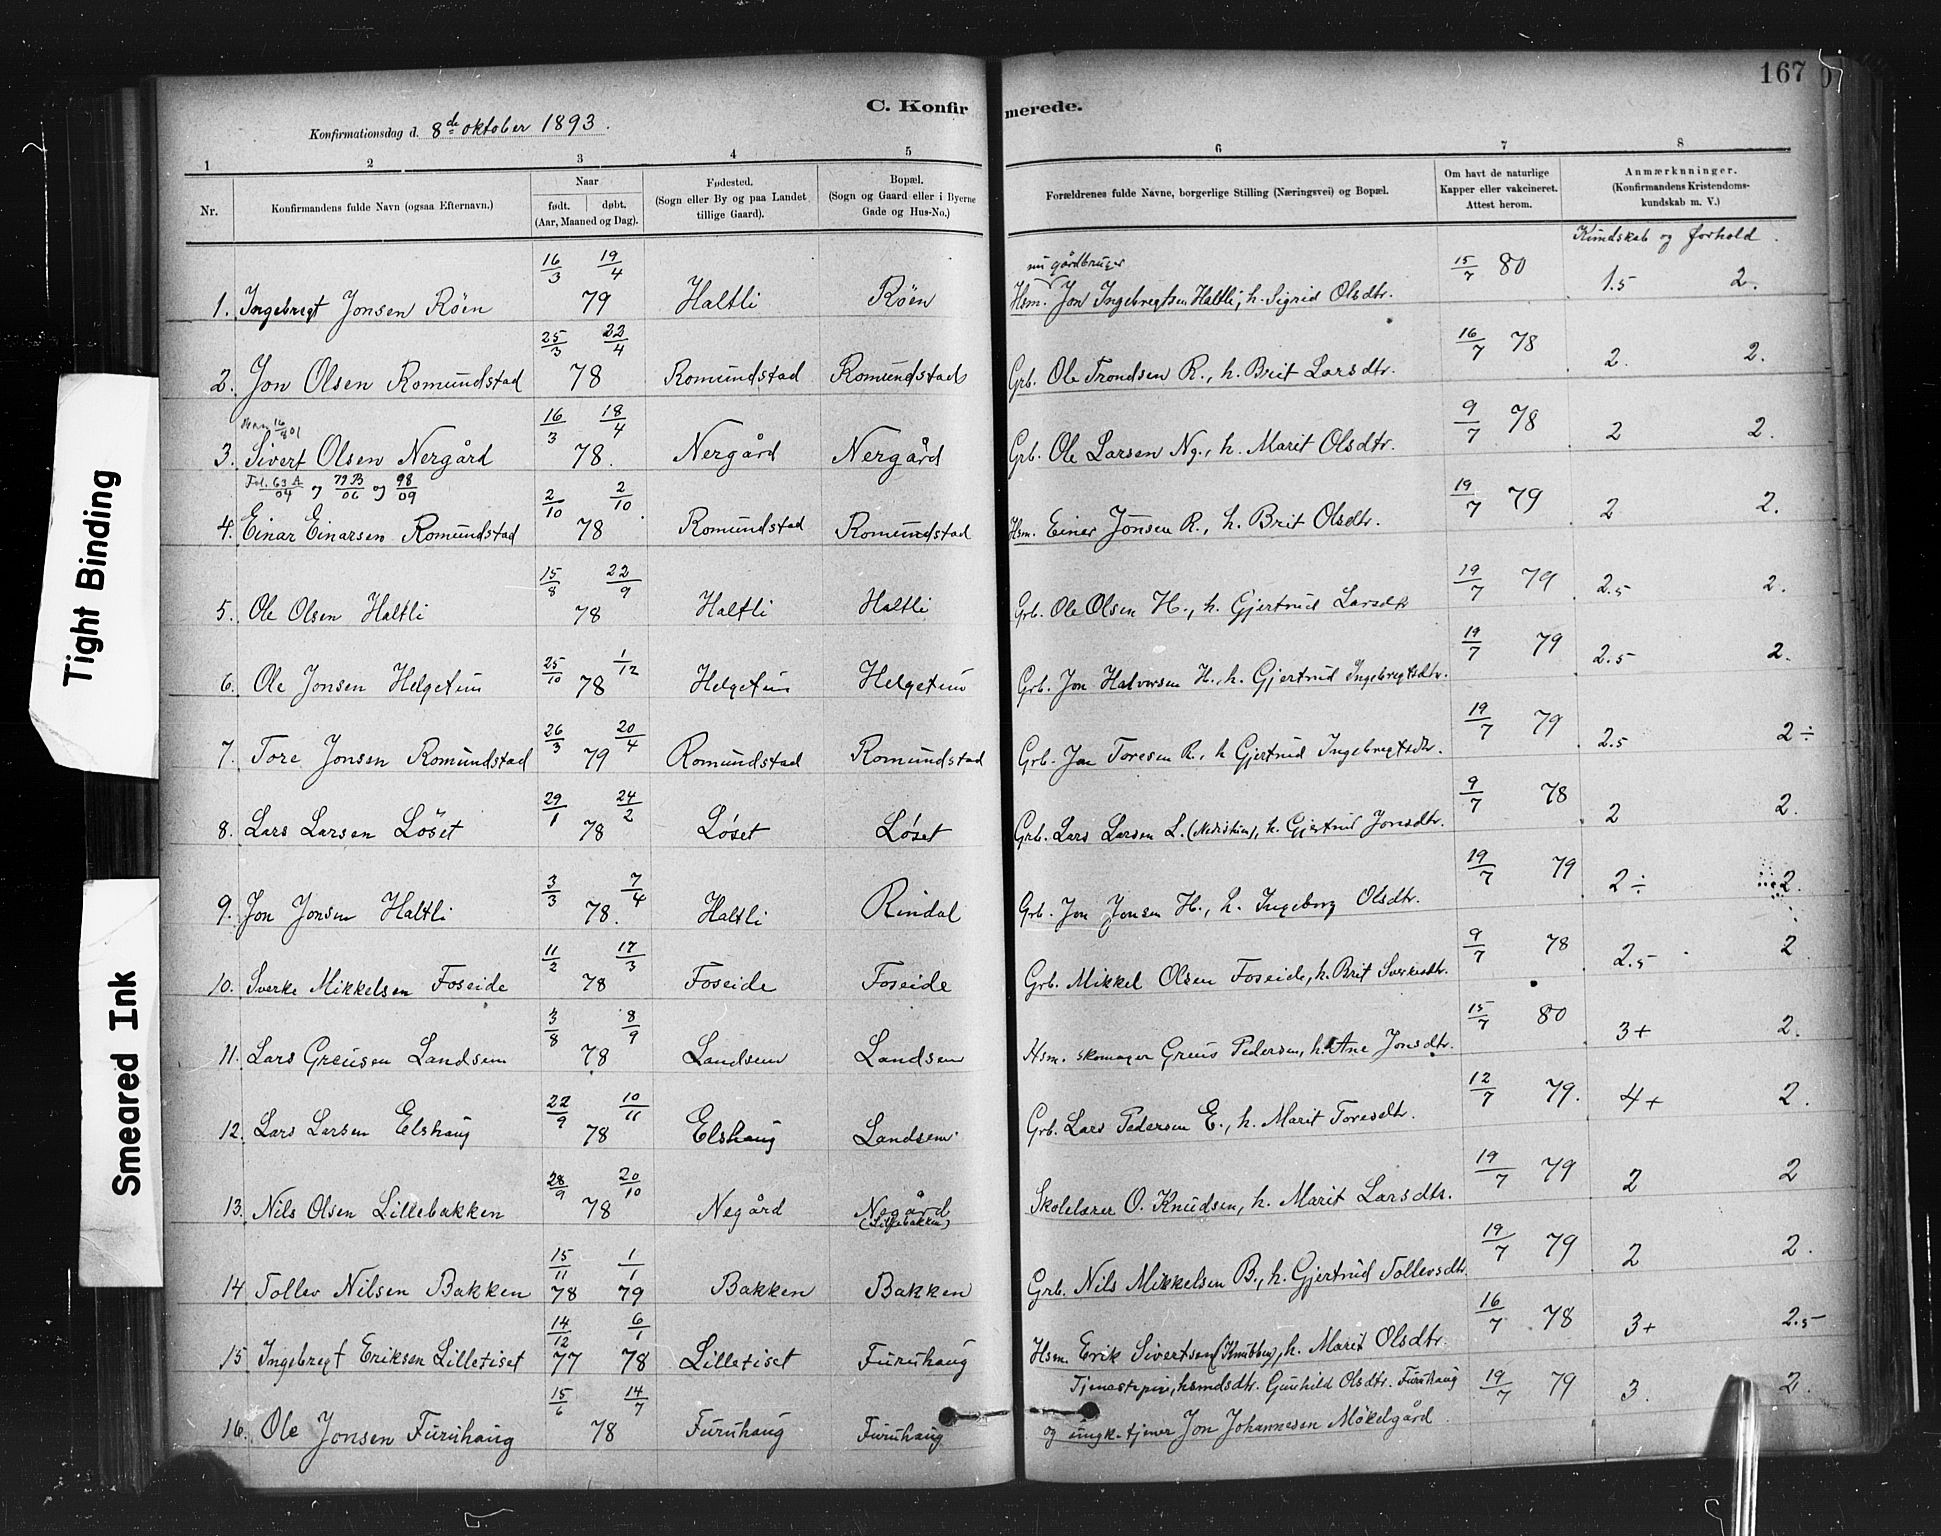 167
C. Konfirmerede.
Konfirmationsdag d. 8de oktober 1893.
1 2 3 4 5 6 7 8
Nr. Konfirmandens fulde Navn (ogsaa Efternavn.) Naar født. døbt. (Aar, Maaned og Dag). Fødested. (Sogn eller By og paa Landet tillige Gaard). Bopæl. (Sogn og Gaard eller i Byerne Gade og Hus-No.) Forældrenes fulde Navne, borgerlige Stilling (Næringsvei) og Bopæl. Om havt de naturlige Kapper eller vakcineret. Attest herom. Anmærkninger. (Konfirmandens Kristendomskundskab m. V.)
Kundskab og forhold.
nu gårdbruger
1. Ingebregt Jonsen Röen 16/3 19/4 79 Haltli Röen Hsm. Jon Ingebregtsen Haltli, h. Sigrid Olsdtr. 15/7 80 1.5 2.
2. Jon Olsen Romundstad 25/3 22/4 78 Romundstad Romundstad Grb. Ole Trondsen R., h. Brit Larsdtr. 16/7 78 2. 2.
3. Sivert Olsen Nergård 16/3 18/4 78. Nergård Nergård Grb. Ole Larsen Ng., h. Marit Olsdtr. 9/7 78 2 2.
Fol. 63A/04 og 79B/06 og 98/09
4. Einar Einarsen Romundstad 2/10 2/10 78 Romundstad Romundstad Hsm. Einer Jonsen R., h. Brit Olsdtr. 19/7 79 2 2.
5. Ole Olsen Haltli 15/8 22/9 78 Haltli Haltli Grb. Ole Olsen H., h. Gjertrud Larsdtr 19/7 79 2.5 2.
6. Ole Jonsen Helgetun 25/10 1/12 78 Helgetun Helgetun Grb. Jon Halvorsen H., h. Gjertrud Ingebregtsdtr. 19/7 79 2.5 2.
7. Tore Jonsen Romundstad 26/3 20/4 79 Romundstad Romundstad Grb. Jon Toresen R., h Gjertrud Ingebregtsdtr. 19/7 79 2.5 2÷
8. Lars Larsen Löset 29/1 24/2 78 Løset Løset Grb. Lars Larsen L. (Nedistun), h. Gjertrud Jonsdtr. 9/7 78 2 2.
9. Jon Jonsen Haltli 3/3 7/4 78. Haltli Rindal Grb. Jon Jonsen H., h. Ingeborg Olsdtr. 19/7 79 2÷ 2.
10. Sverke Mikkelsen Foseide 11/2 17/3 78 Foseide Foseide Grb. Mikkel Olsen Foseide, h. Brit Sverkesdtr. 9/7 78 2.5 2
11. Lars Greusen Landsem 3/8 8/9 78 Landsem Landsem Hsm. skomager Greus Pedersen, h. Ane Jonsdtr. 15/7 80 3+ 2.
12. Lars Larsen Elshaug 22/9 10/11 78 Elshaug Landsem Grb. Lars Pedersen E., h. Marit Toresdtr. 12/7 79. 4+ 2.
13. Nils Olsen Lillebakken 28/9 20/10 78 Negård Negård (Lillebakken) Skolelærer O. Knudsen, h. Marit Larsdtr. 19/7 79 2 2
14 Tollev Nilsen Bakken 15/11 78 1/1 79 Bakken Bakken Grb. Nils Mikkelsen B., h. Gjertrud Tollevsdtr. 19/7 79 2 2.
15 Ingebregt Eriksen Lilletiset 14/12 77 6/1 78 Lilletiset Furuhaug Hsm. Erik Sivertsen (Knubben), h. Marit Olsdtr. 16/7 78 3+ 2.5
16. Ole Jonsen Furuhaug 15/6 14/7 78 Furuhaug Furuhaug Tjenestepie, hsmdsdtr. Gunhild Olsdtr. Furuhaug 19/7 79 3. 2.
og ungk. tjener Jon Johannesen Møkelgård.
Tight Binding
Smeared Ink